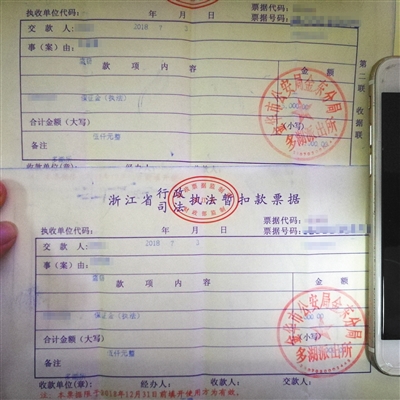 执收单位代码： 年 月 日 票据代码：
交 款 人： 2018 7 票据号码：
事（案）由：
款 项 内 容 金 额
保证金（执法）
合计金额（大写） 伍仟元整 （小写）
备注
第二联 收据联
金华市公安局金东分局
多湖派出所
浙江省行政司法执法暂扣款票据
执收单位代码： 年 月 日 票据代码：
交 款 人： 2018 7 票据号码：
事（案）由：
款 项 内 容 金 额
保证金（执法）
合计金额（大写） （小写）
伍仟元整
备注
金华市公安局金东分局
多湖派出所
收款单位(章)： 经办人： 收款人： 交款人：
注：本票据限于2018年12月31日前填开使用方为有效。